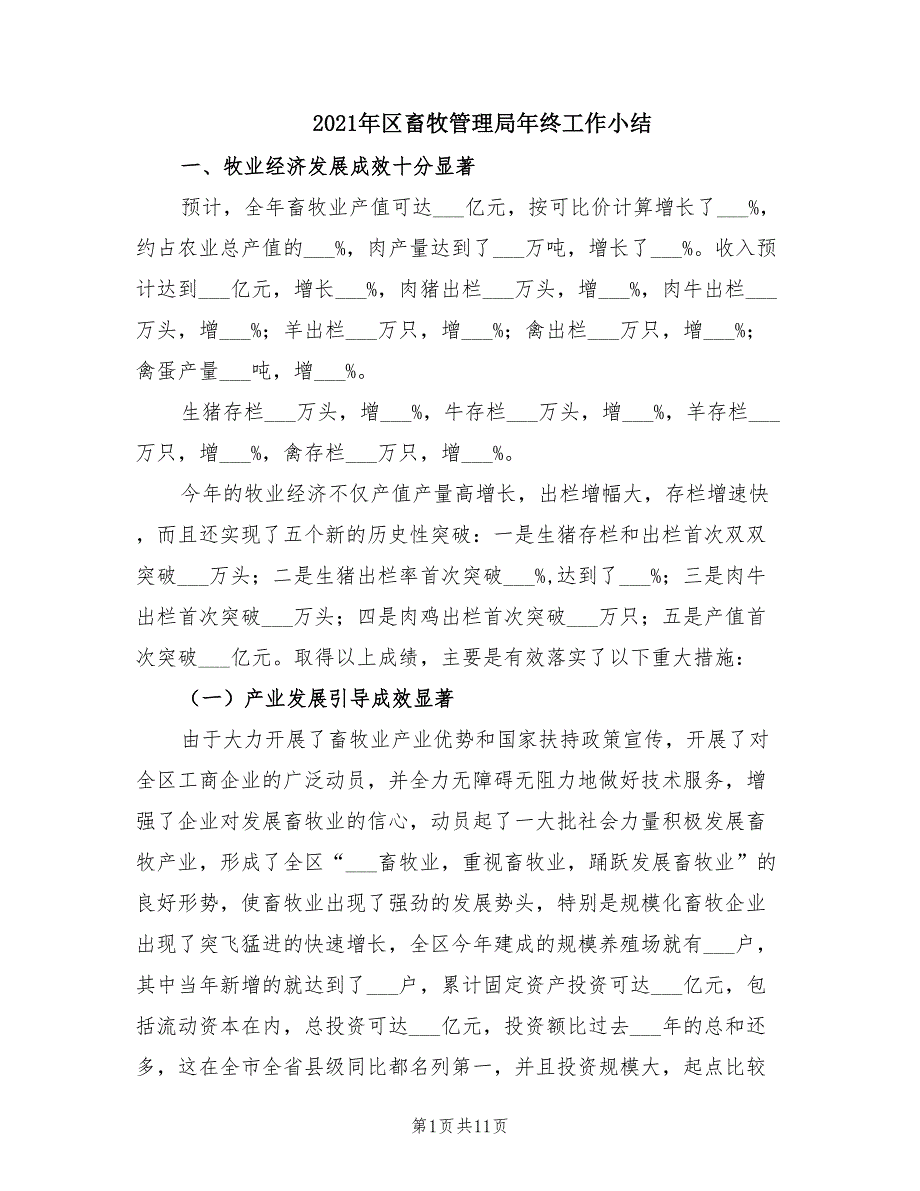 2021年区畜牧管理局年终工作小结
一、牧业经济发展成效十分显著
预计，全年畜牧业产值可达___亿元，按可比价计算增长了___%，
约占农业总产值的___%，肉产量达到了___万吨，增长了___%。收入预
计达到___亿元，增长___%，肉猪出栏___万头，增___%，肉牛出栏___
万头，增___%；羊出栏___万只，增___%；禽出栏___万只，增___%；
禽蛋产量___吨，增___%。
生猪存栏___万头，增___%，牛存栏___万头，增___%，羊存栏___
万只，增___%，禽存栏___万只，增___%。
今年的牧业经济不仅产值产量高增长，出栏增幅大，存栏增速快
，而且还实现了五个新的历史性突破：一是生猪存栏和出栏首次双双
突破___万头；二是生猪出栏率首次突破___%,达到了___%；三是肉牛
出栏首次突破___万头；四是肉鸡出栏首次突破___万只；五是产值首
次突破___亿元。取得以上成绩，主要是有效落实了以下重大措施：
（一）产业发展引导成效显著
由于大力开展了畜牧业产业优势和国家扶持政策宣传，开展了对
全区工商企业的广泛动员，并全力无障碍无阻力地做好技术服务，增
强了企业对发展畜牧业的信心，动员起了一大批社会力量积极发展畜
牧产业，形成了全区“___畜牧业，重视畜牧业，踊跃发展畜牧业”的
良好形势，使畜牧业出现了强劲的发展势头，特别是规模化畜牧企业
出现了突飞猛进的快速增长，全区今年建成的规模养殖场就有___户，
其中当年新增的就达到了___户，累计固定资产投资可达___亿元，包
括流动资本在内，总投资可达___亿元，投资额比过去___年的总和还
多，这在全市全省县级同比都名列第一，并且投资规模大，起点比较
第1页共11页